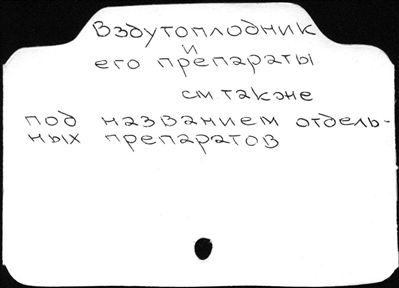 Вздутоплодник
и
его препараты
см также
под названием отдель-
ных препаратов